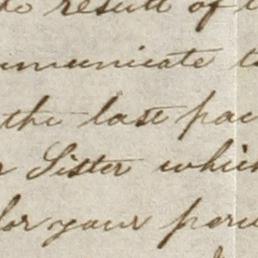 result of
municate
the last pac
Sister which
for your peru